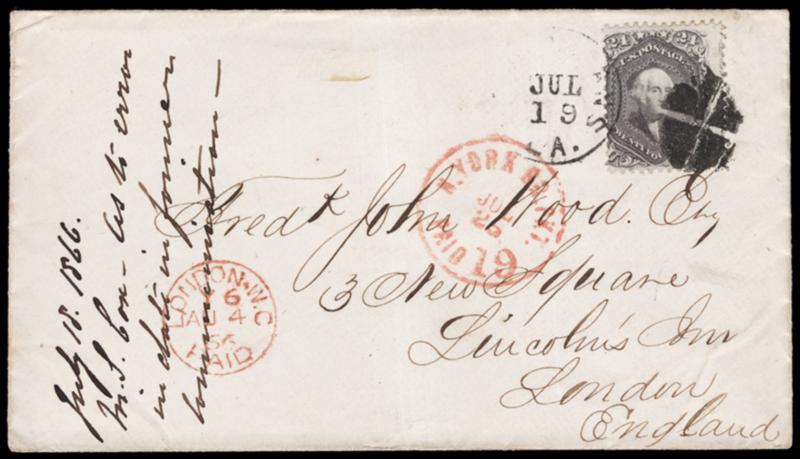 July 18. 1866.
M. S. Cox - as to error
in date in former
communication -
24 24
U.S. POSTAGE
JUL
19
LA.
N. YORK BR. PKT.
JUL
19
Fredk John Wood. Esq
3 New Square
Lincoln's Inn
London
England
LONDON.W.C
6
AU 4
66
PAID